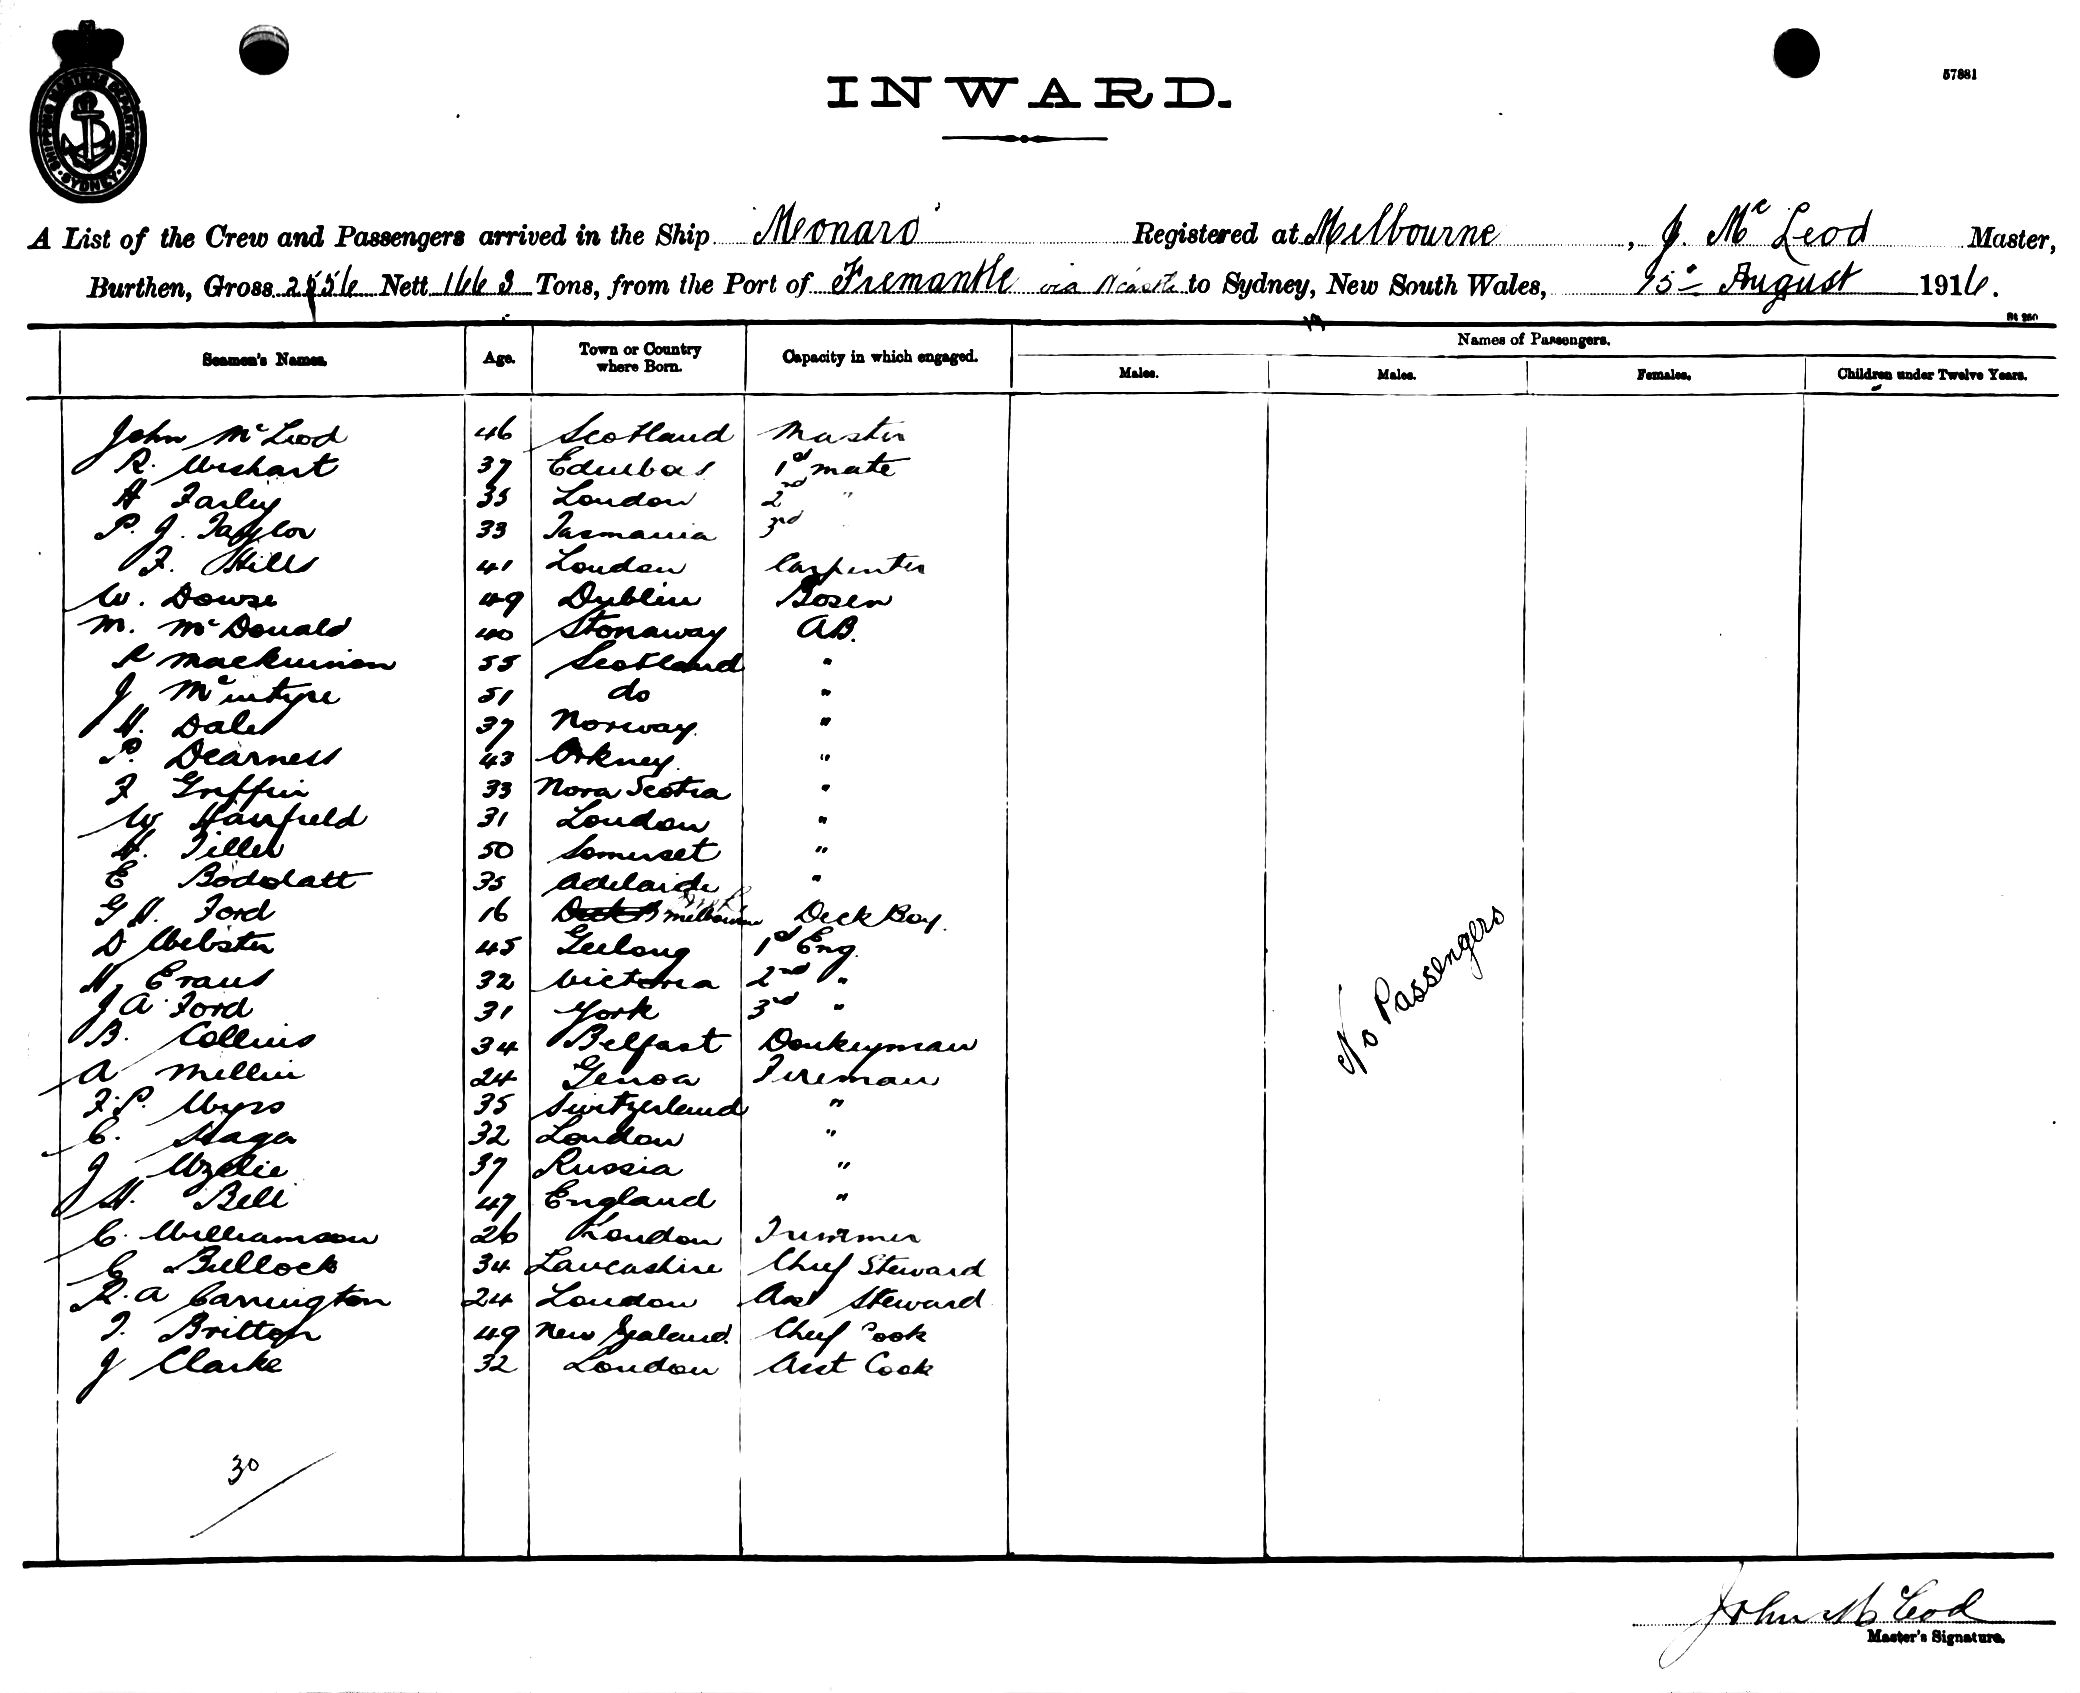 SHIPPING MASTERS DEPARTMENT
SYDNEY
57881
INWARD.
A List of the Crew and Passengers arrived in the Ship "Monaro" Registered at Melbourne, J. McLeod Master,
Burthen, Gross Nett 1663 Tons, from the Port of Fremantle via N'castle to Sydney, New South Wales, 15th August 1916.
Seamen's Names. Age. Town or Country where Born. Capacity in which engaged. Names of Passengers.
Males. Males. Females. Children under Twelve Years.
John McLeod 46 Scotland Master
R. Wishart 37 1st mate
H Farley 35 London 2nd "
P. J. Taylor 33 Tasmania 3rd
F. Hills 41 London Carpenter
W. Dowse 49 Dublin Bosen
M. McDonald 40 Stonaway AB.
Mackinnon 55 Scotland "
J McIntyre 51 do "
H. Dale 37 Norway "
P. Dearness 43 Orkney "
F Griffin 33 Nova Scotia "
W Hanfield 31 London "
H. Tiller 50 Somerset "
E Boddatt 35 Adelaide "
G H. Ford 16 Melbourne Deck Boy.
D Webster 45 Geelong 1st Eng.
H. Evans 32 Victoria 2nd "
J A Ford 31 York 3rd "
B. Collins 34 Belfast Donkeyman
A Mellin 24 Genoa Fireman
F. P. Wyss 35 Switzerland "
C. Hager 32 London "
J 37 Russia "
H. Bell 47 England "
C. Williamson 26 London Trimmer
C Bullock 34 Lancashire Chief Steward
R. A Carrington 24 London Asst Steward
T. Britton 49 New Zealand. Chief Cook
J Clarke 32 London Asst Cook
No Passengers
30
John McLeod
Master's Signature.